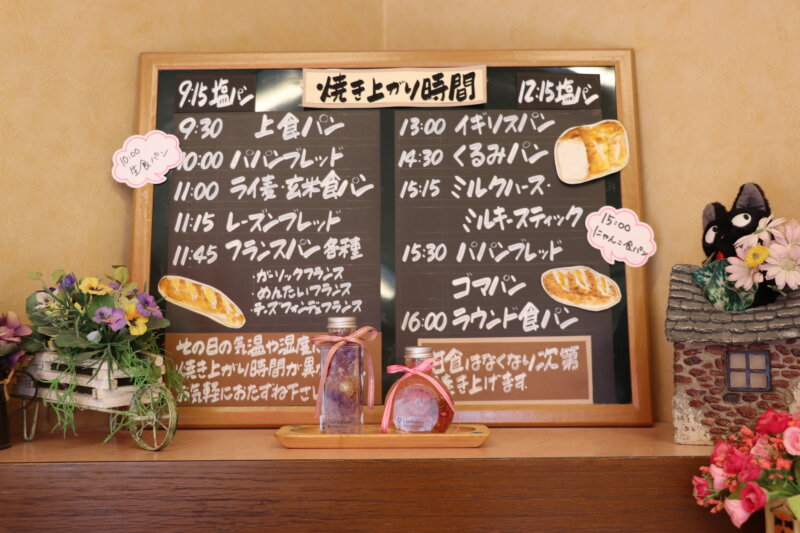 焼き上がり時間
9:15 塩パン
9:30 上食パン
10:00
生食パン
10:00 パパンブレッド
11:00 ライ麦・玄米食パン
11:15 レーズンブレッド
11:45 フランスパン各種
・ガーリックフランス
・めんたいフランス
・チーズフォンデュフランス
その日の気温や湿度に
焼き上がり時間が異
お気軽におたずね下さい
12:15 塩パン
13:00 イギリスパン
14:30 くるみパン
15:15 ミルクハース・
ミルキースティック
15:00
にゃんこ食パン
15:30 パパンブレッド
ゴマパン
16:00 ラウンド食パン
食はなくなり次第
き上げます.